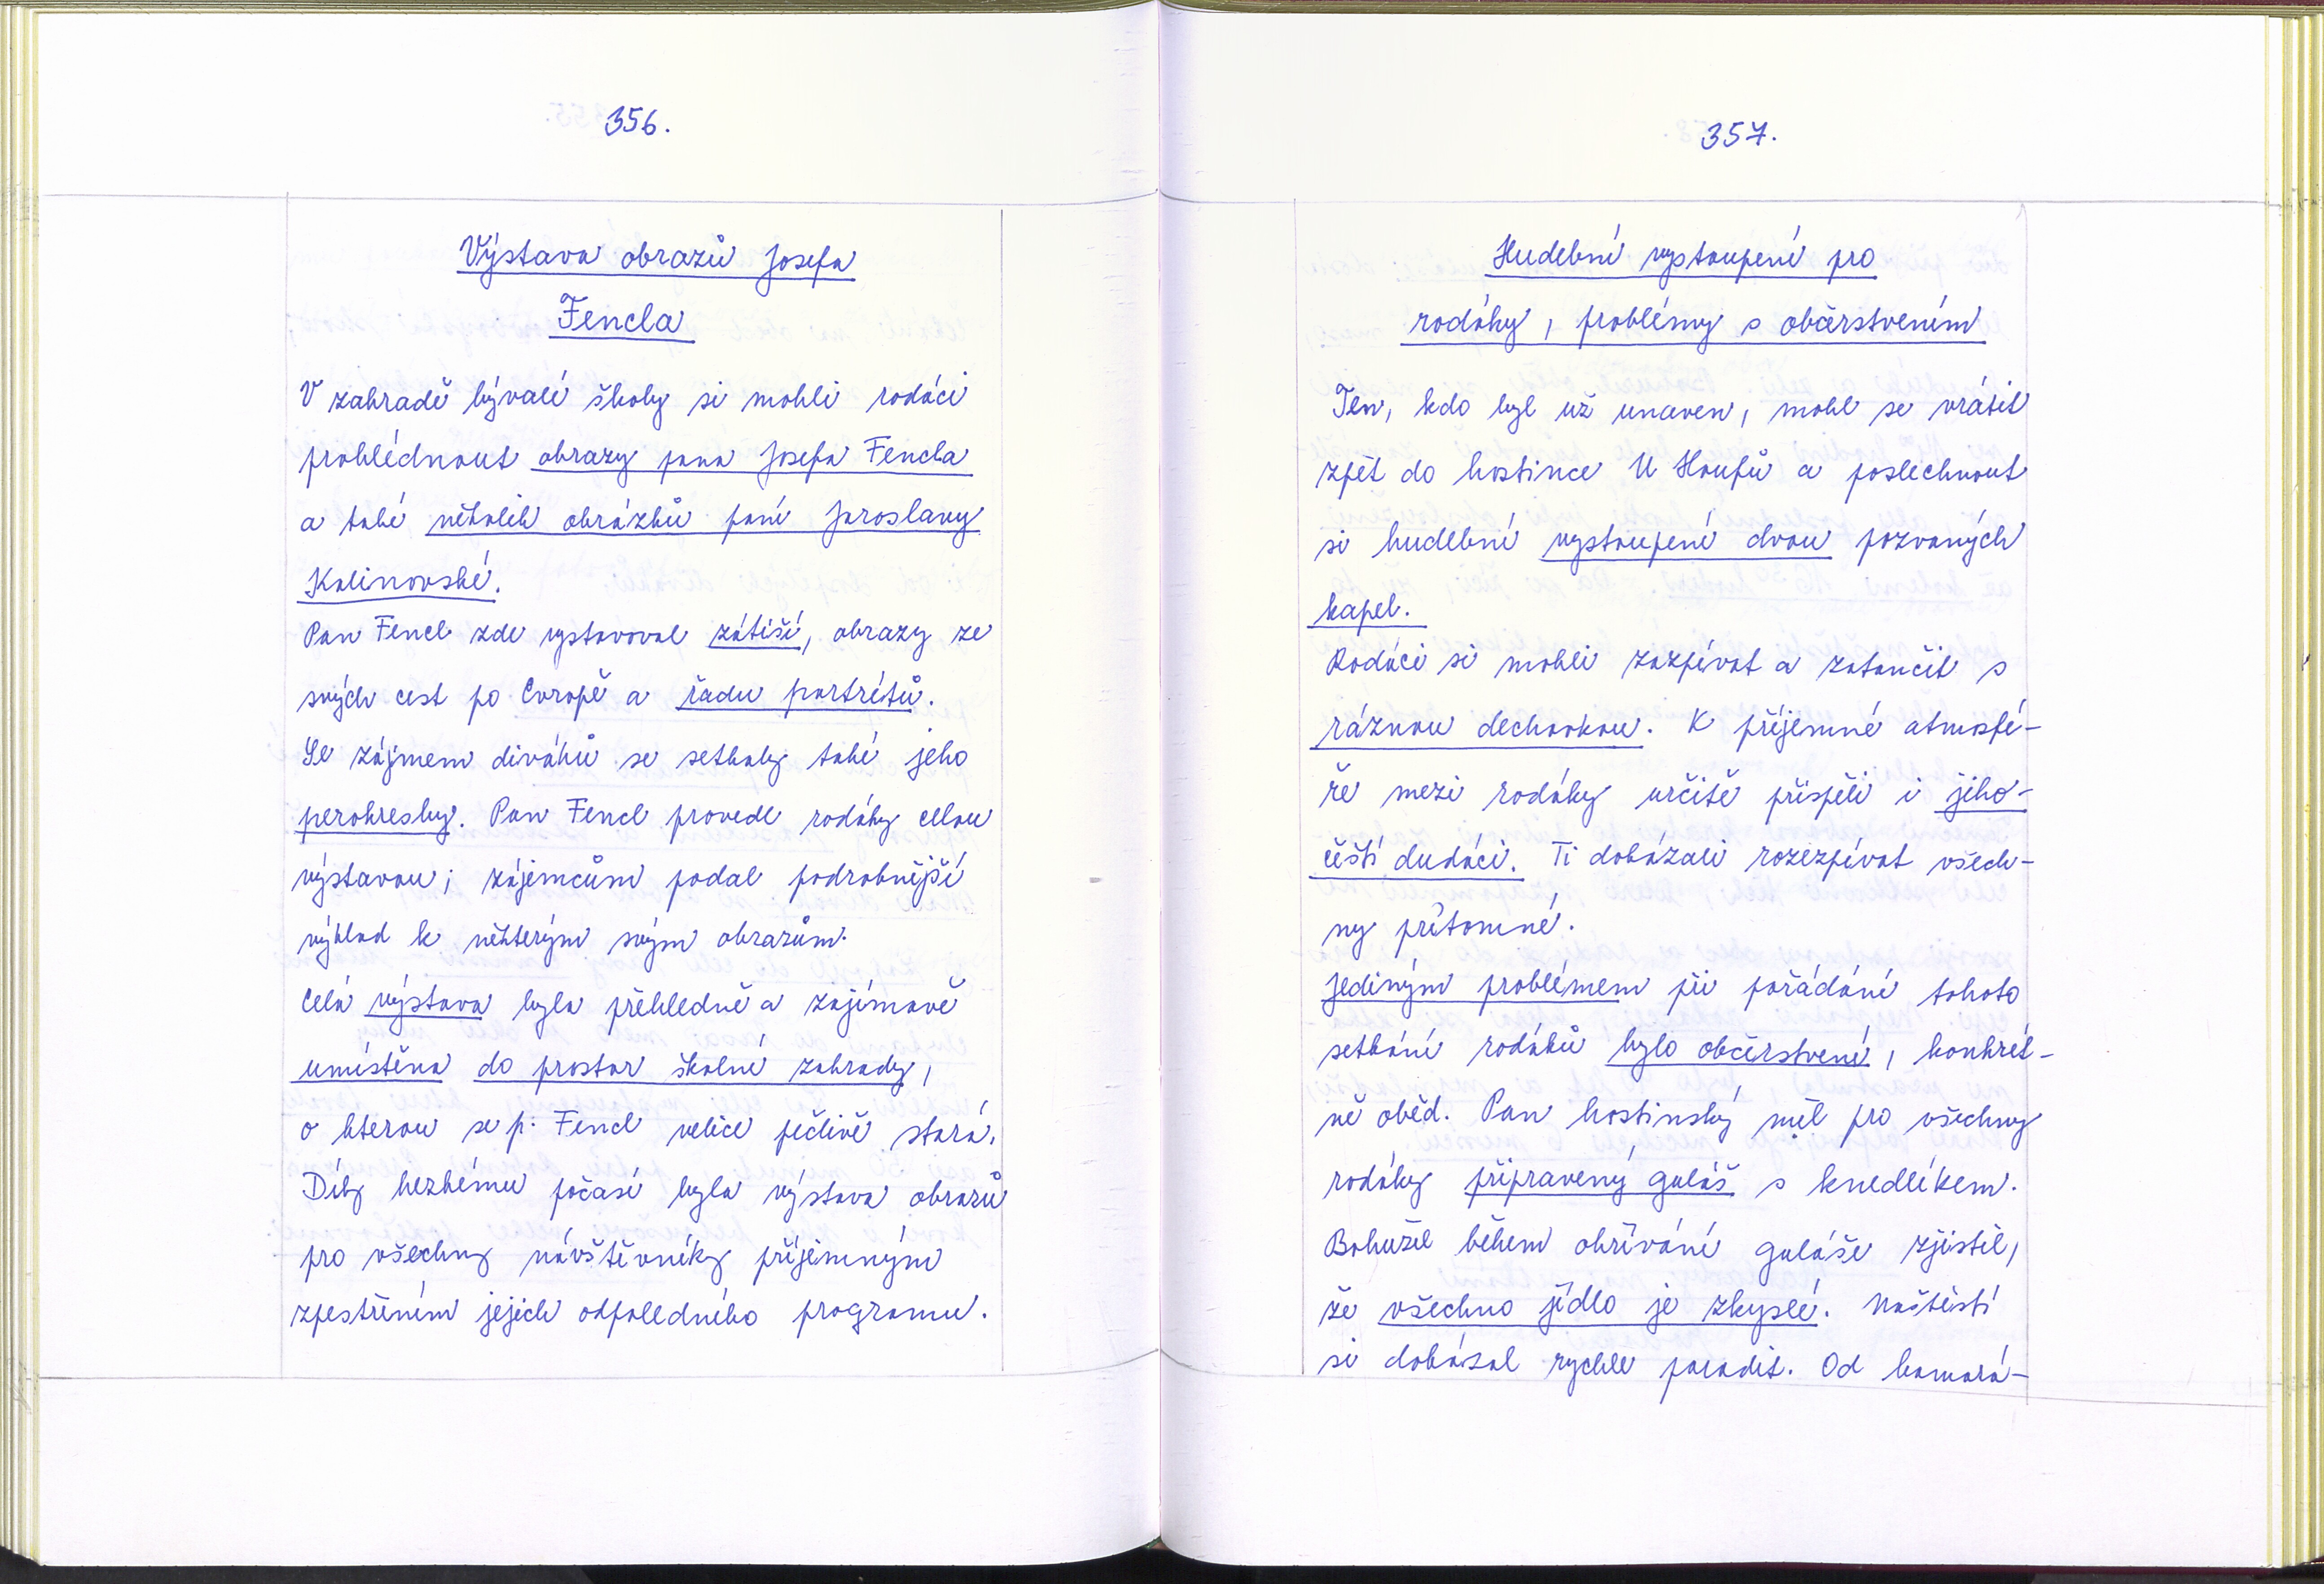 356.
Výstava obrazů Josefa
Fencla
V zahradě bývalé školy si mohli rodáci
prohlédnout obrazy pana Josefa Fencla
a také několik obrázků paní Jaroslavy
Kalinovské.
Pan Fencl zde vystavoval zátiší, obrazy ze
svých cest po Evropě a řadu portrétů.
Se zájmem diváků se setkaly také jeho
perokresby. Pan Fencl provedl rodáky celou
výstavou; zájemcům podal podrobnější
výklad k některým svým obrazům.
Celá výstava byla přehledně a zajímavě
umístěna do prostor školní zahrady,
o kterou se p. Fencl velice pečlivě stará.
Díky hezkému počasí byla výstava obrazů
pro všechny návštěvníky příjemným
zpestřením jejich odpoledního programu.
357.
Hudební vystoupení pro
rodáky, problémy s občerstvením
Ten, kdo byl už unaven, mohl se vrátit
zpět do hostince U Houfů a poslechnout
si hudební vystoupení dvou pozvaných
kapel.
Rodáci si mohli zazpívat a zatančit s
ráznou dechovkou. K příjemné atmosfé-
ře mezi rodáky určitě přispěli i jiho-
čeští dudáci. Ti dokázali rozezpívat všech-
ny přítomné.
Jediným problémem při pořádání tohoto
setkání rodáků bylo občerstvení, konkrét-
ně oběd. Pan hostinský měl pro všechny
rodáky připravený guláš s knedlíkem.
Bohužel během ohřívání guláše zjistil,
že všechno jídlo je zkyslé. Naštěstí
si dokázal rychle poradit. Od kamará-